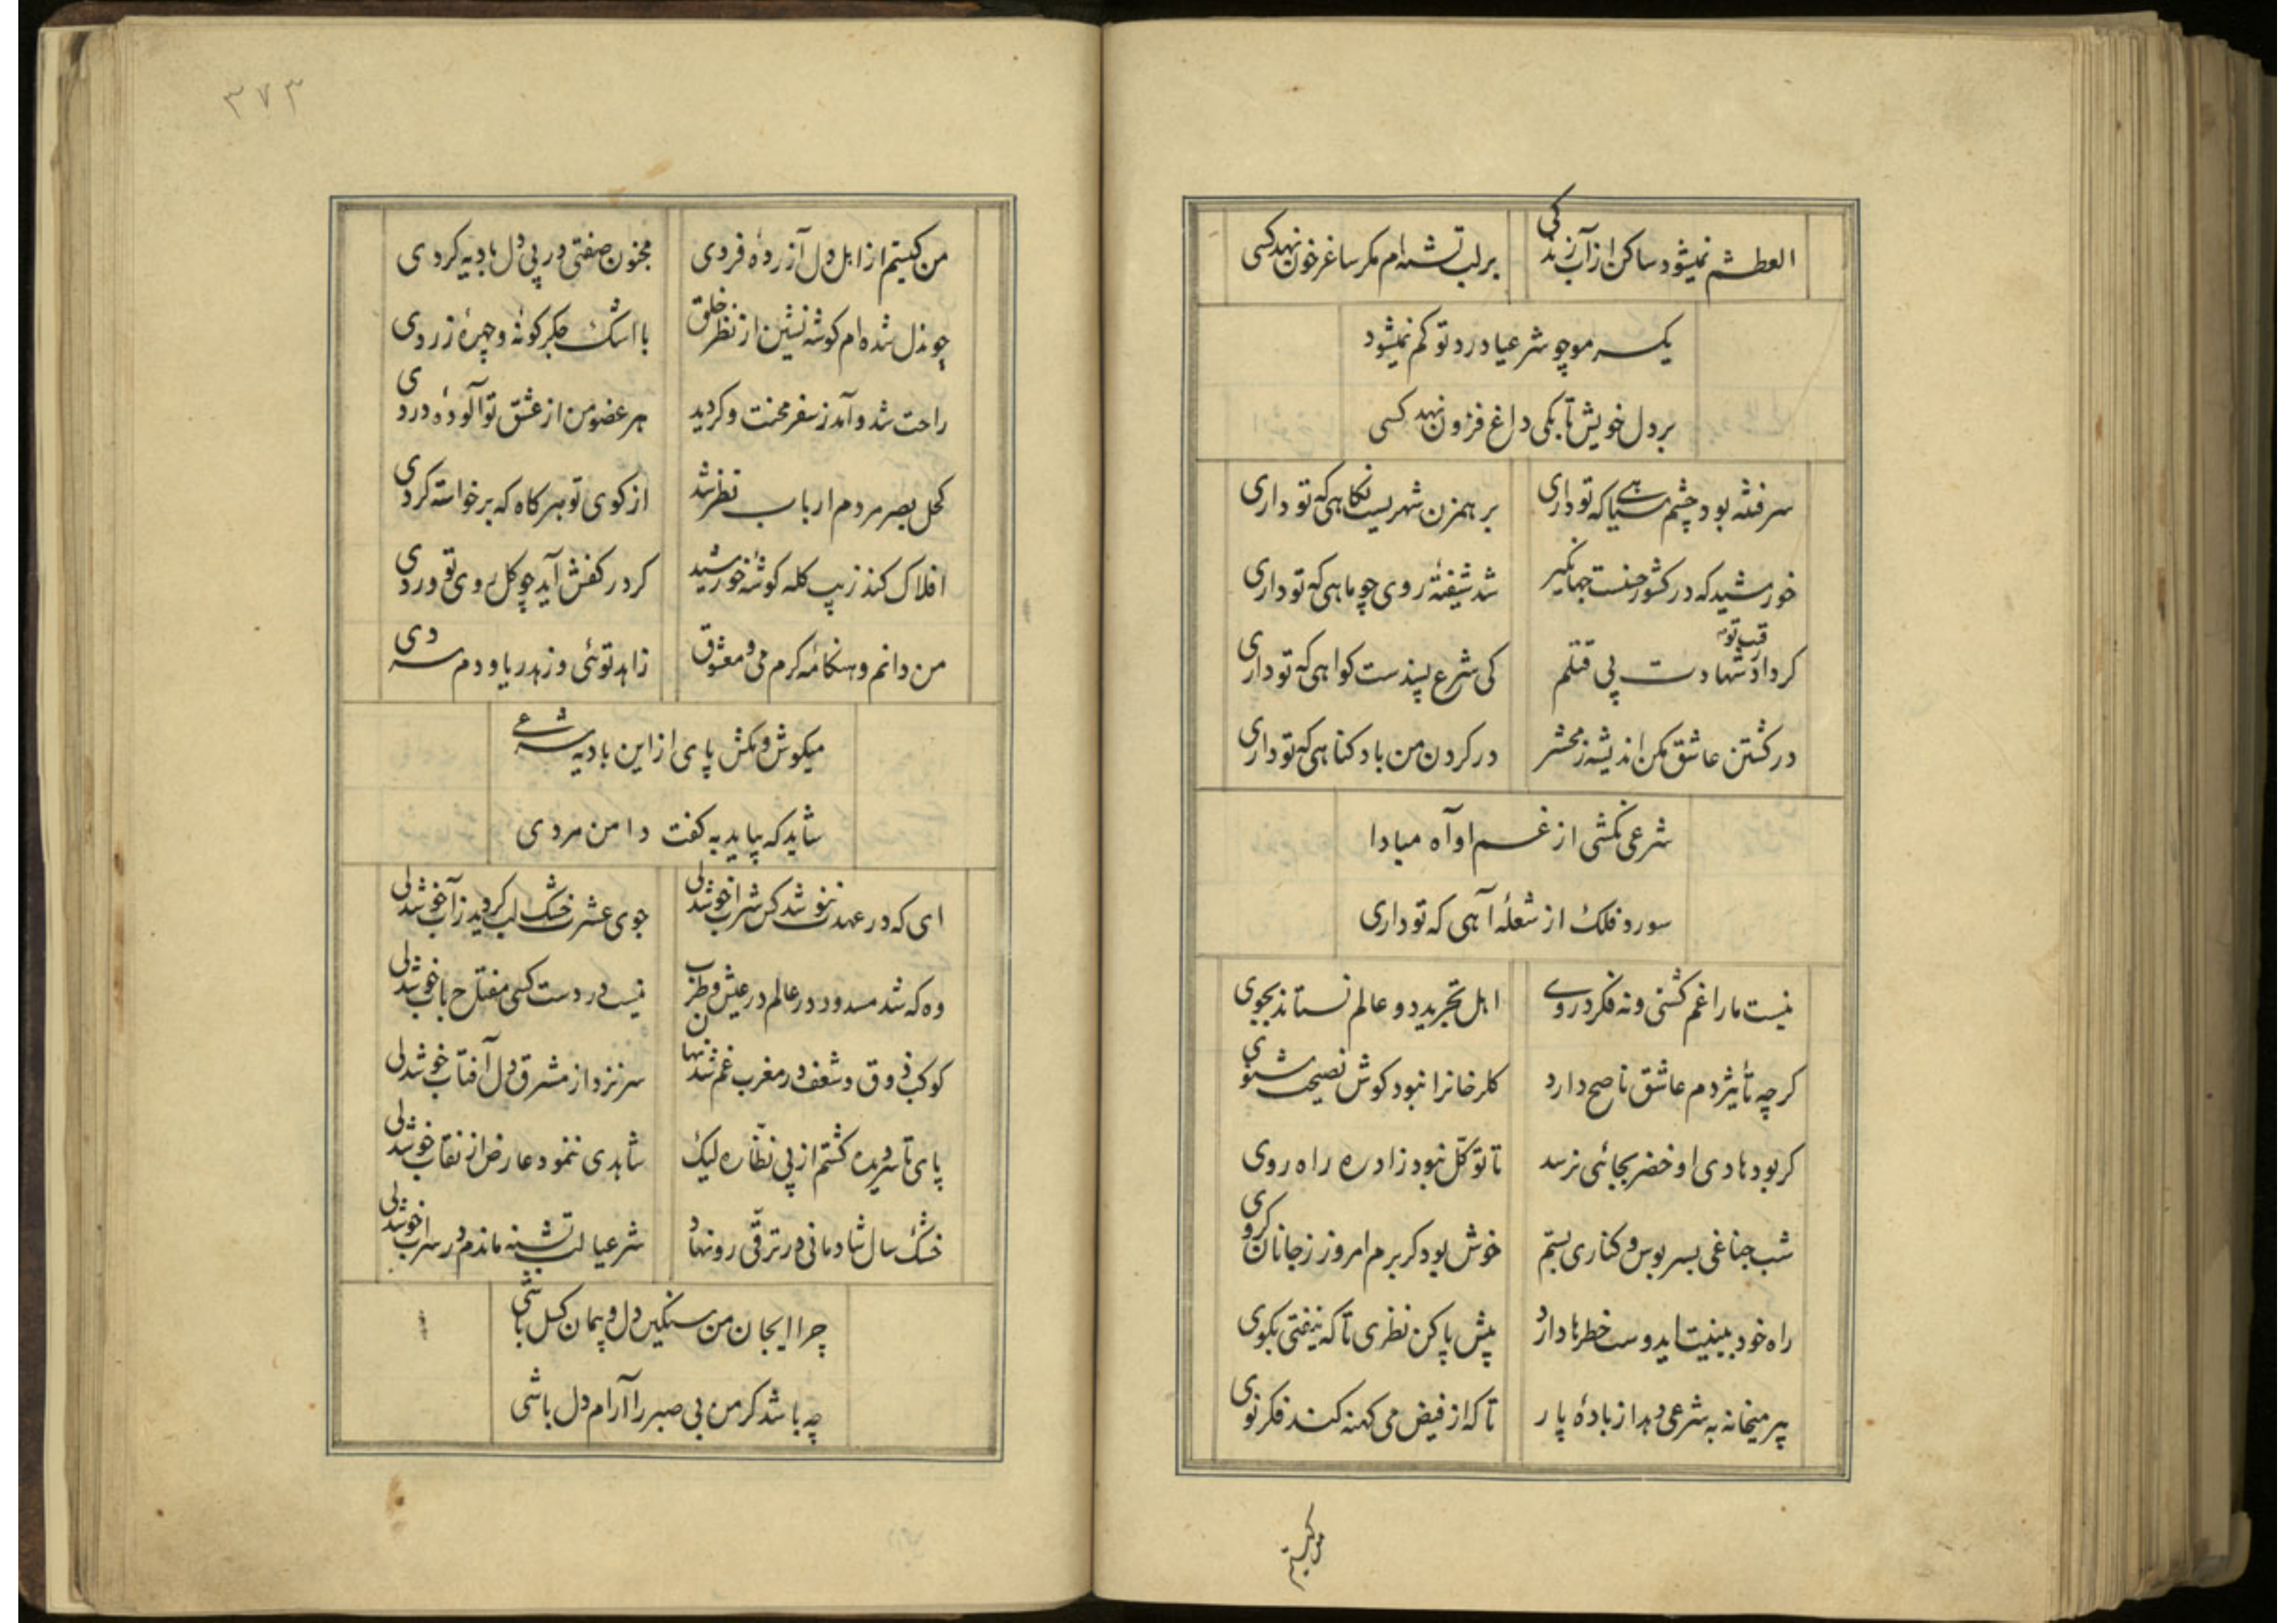 العطشم نمیشود ساکن از آب زندکی
بر لب تشنه‌ام مکر ساغر خون نهد کسی
یکسر مو چو شرعیا درد تو کم نمیشود
بر دل خویش تا بکی داغ فزون نهد کسی
سر فتنه بود چشم سیاهی که تو داری
بر همزن شهریست نکاهی که تو داری
خورشید که در کشور حسنست جهانکیر
شد شیفتهٔ روی چو ماهی که تو داری
کرد ادا شهادت پی قتلم
کی شرع پسندست کواهی که تو داری
در کشتن عاشق مکن اندیشه ز محشر
در کردن من باد کناهی که تو داری
شرعی نکشی از غم او آه مبادا
سوزد فلک از شعلهٔ آهی که تو داری
نیست ما را غم کشتی و نه فکر دروی
اهل تجرید دو عالم نستانند بجوی
کر چه تأثیر دم عاشق ناصح دارد
کلرخانرا نبود کوش نصیحت شنوی
کر بود هادی او خضر بجائی نرسد
تا توکّل نبود زاد ره راه روی
شب جناغی بسر بوس و کناری بستم
خوش بود کر برم امروز ز جانان کروی
راه خود بینیت ایدوست خطرها دارد
پیش پا کن نظری تا که نیفتی بکوی
پیر میخانه به شرعی دهد از بادهٔ پار
تا که از فیض می کهنه کند فکر نوی
من کیستم
۳۷۳
من کیستم از اهل دل آزرده فردی
مجنون صفتی در پی دل بادیه کردی
چوندل شده‌ام کوشه نشین از نظر خلق
با اشک جکر کونه و چهرهٔ زردی
راحت شد و آمد ز سفر محنت و کردید
هر عضو من از عشق تو آلودهٔ دردی
کحل بصر مردم ارباب نظر شد
از کوی تو هر کاه که برخواسته کردی
افلاک کند زیب کله کوشهٔ خورشید
کر در کفش آید چو کل روی تو وردی
من دانم و هنکامهٔ کرم می و معشوق
زاهد توئی و زهد ریا و دم سردی
میکوش و مکش پای از این بادیه شرعی
شاید که بیاید به کفت دامن مردی
ای که در عهدت ننوشد کس شراب خوشدلی
جوی عشرت خشک لب کردید ز آب خوشدلی
وه که شد مسدود در عالم در عیش و طرب
نیست در دست کسی مفتاح باب خوشدلی
کوکب ذوق و شعف در مغرب غم شد نهان
سر نزد از مشرق دل آفتاب خوشدلی
پای تا سر دیده کشتم از پی نظّاره لیک
شاهدی ننمود عارض از نقاب خوشدلی
خشک سال شادمانی در ترقّی رو نهاد
شرعیا لب تشنه ماندم در سراب خوشدلی
چرا ایجان من سنکین دل و پیمان کسل باشی
چه باشد کر من بی صبر را آرام دل باشی